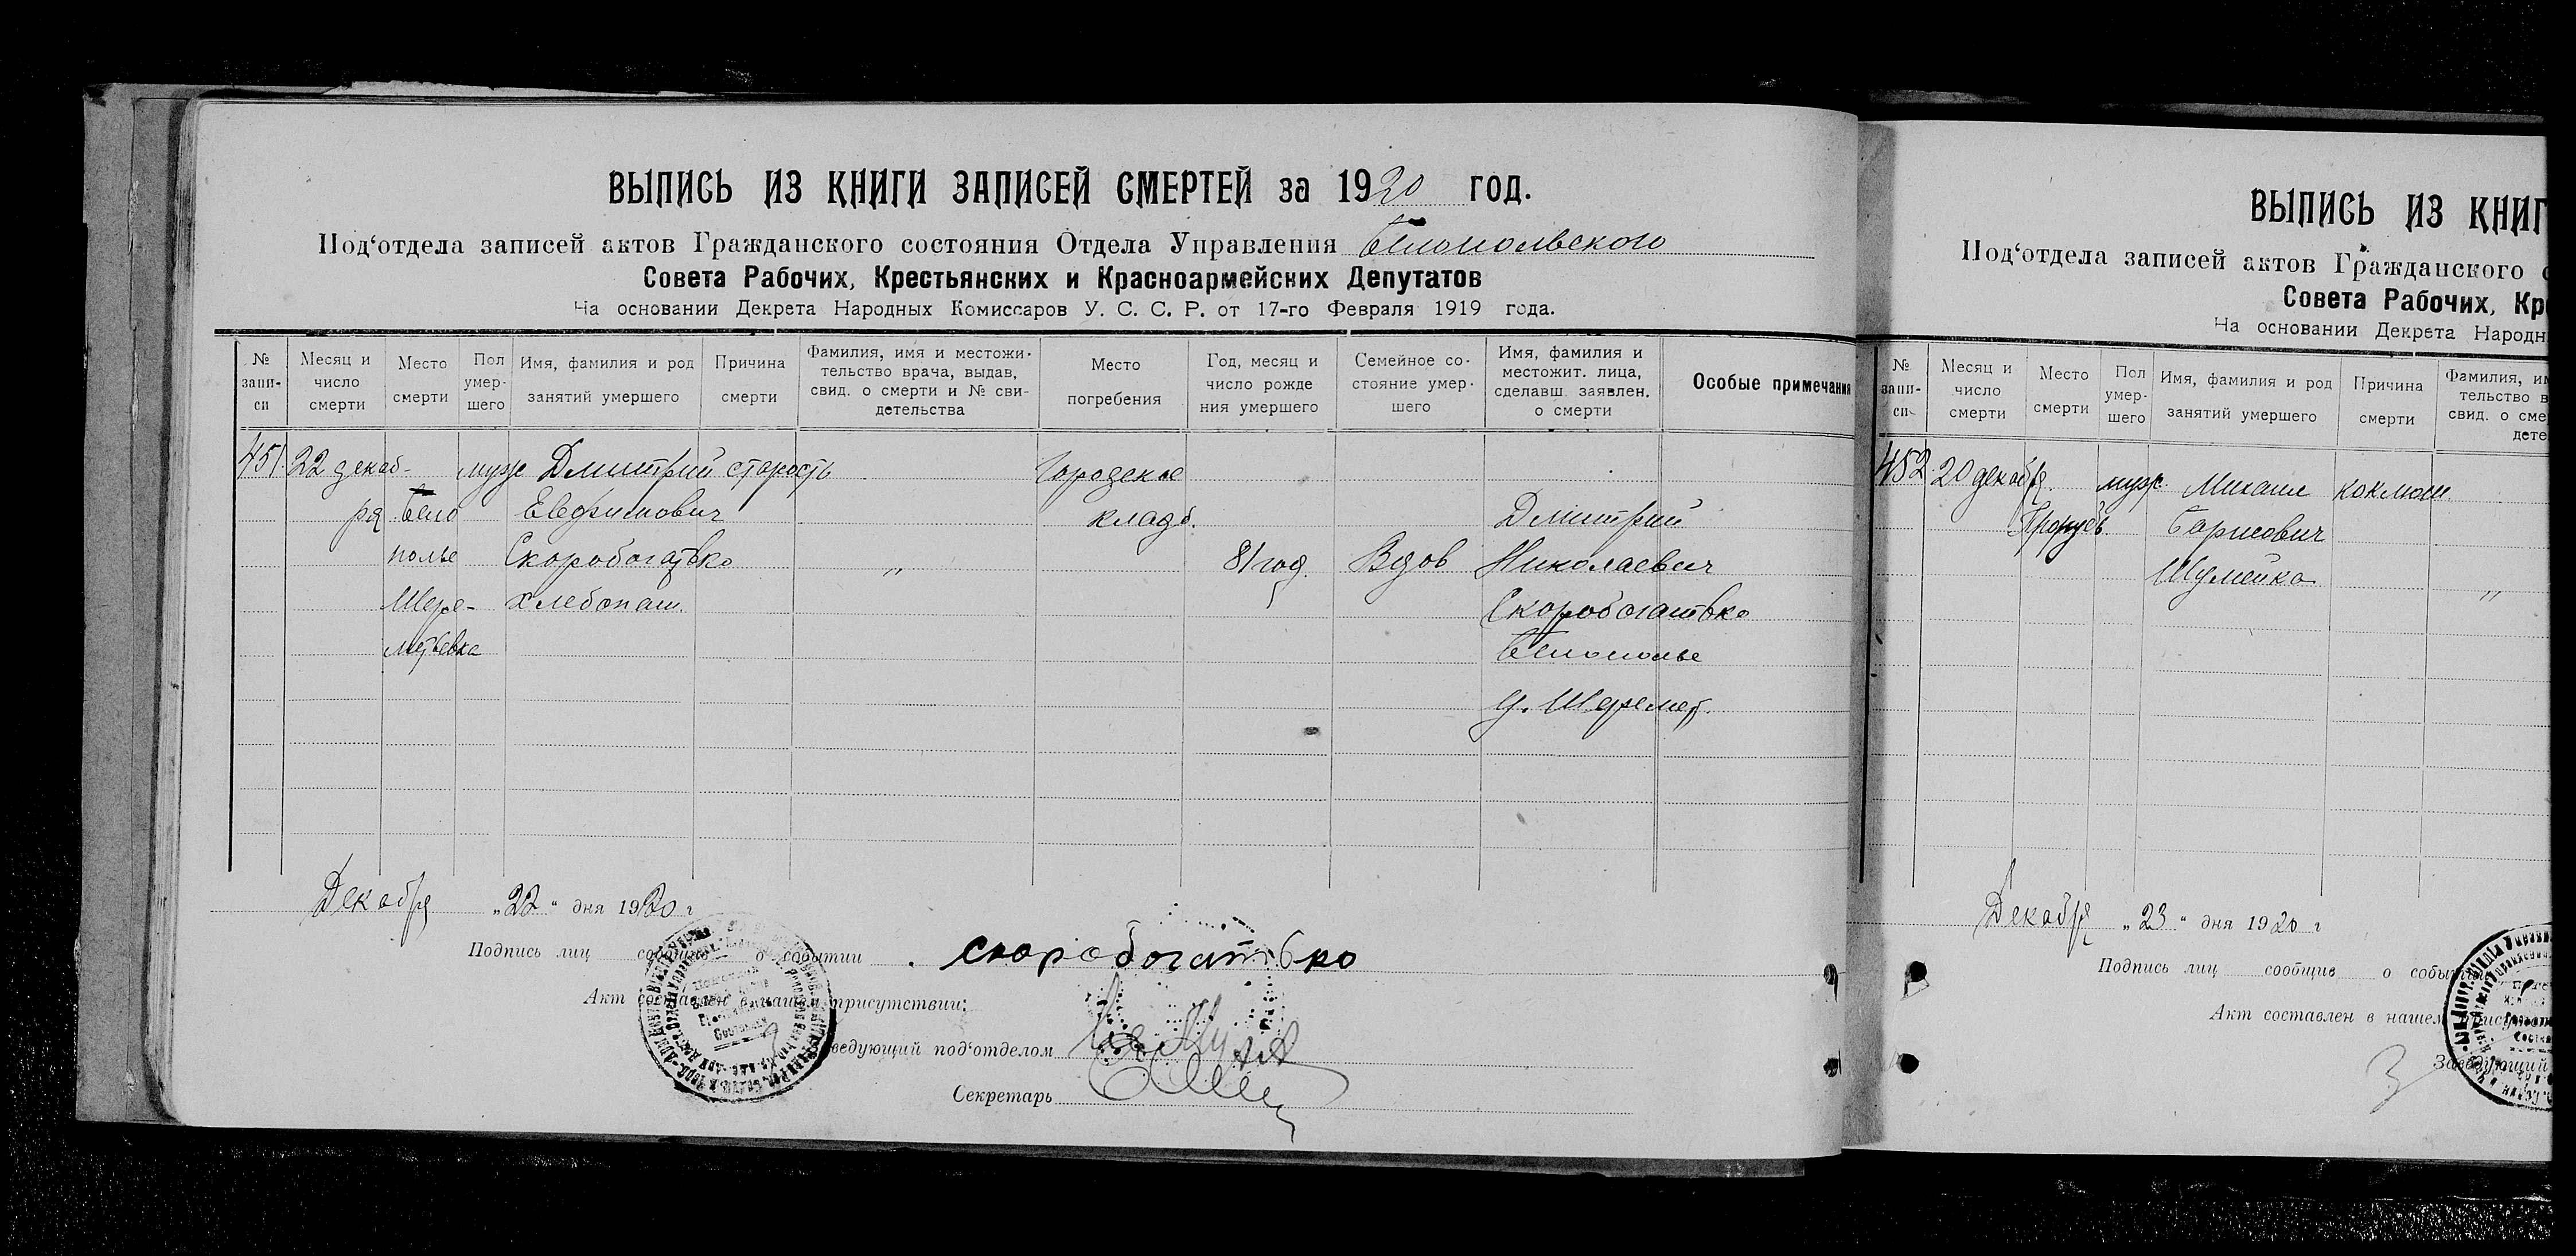 ВЫПИСЬ ИЗ КНИГИ ЗАПИСЕЙ СМЕРТЕЙ за 1920 год.
Под‘отдела записей актов Гражданского состояния Отдела Управления Белопольского
Совета Рабочих, Крестьянских и Красноармейских Депутатов
На основании Декрета Народных Комиссаров У. С. С. Р. от 17-го Февраля 1919 года.
№ запи-си
Месяц и число смерти
Место смерти
Пол умер-шего
Имя, фамилия и род занятий умершего
Причина смерти
Фамилия, имя и местожи-тельство врача, выдав, свид. о смерти и № сви-детельства
Место погребения
Год, месяц и число рожде ния умершего
Семейное со-стояние умер-шего
Имя, фамилия и местожит. лица, сделавш. заявлен. о смерти
Особые примечания
451 22 декаб- муж Дмитрий старость Городское
ря Бело Евфимович кладб. Дмитрий
полье Скоробогатько „ 81 год. Вдов Николаевич
Шере- хлебопаш. Скоробогатько
метьевка Белополье
д. Шеремет.
Декабря „22“ дня 1920 г
Подпись лиц сообщив о событии скоробогатько
Акт составлен в нашем присутствии:
ведующий под‘отделом
Секретарь
ВЫПИСЬ ИЗ КНИГ
Под‘отдела записей актов Гражданского с
Совета Рабочих, Кр
На основании Декрета Народн
№ запи-си
Месяц и число смерти
Место смерти
Пол умер-шего
Имя, фамилия и род занятий умершего
Причина смерти
Фамилия, им
тельство в
свид. о сме
дете
452 20 декабря муж. Михаил коклюш
Прорубь. Борисович
Шумейко „
Декабря „23“ дня 1920 г
Подпись лиц сообщив о событи
Акт составлен в нашем присутст
Заведующий